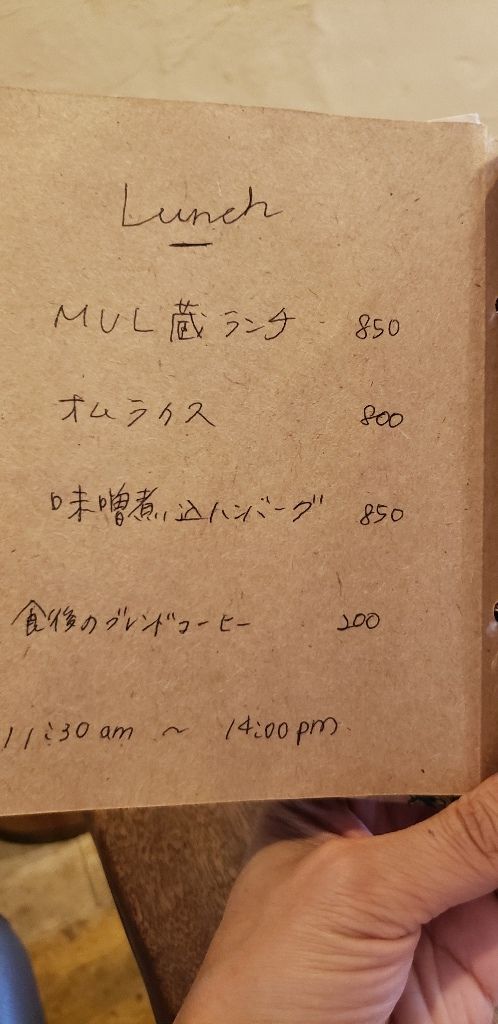 Lunch
MUL蔵ランチ 850
オムライス 800
味噌煮込ハンバーグ 850
食後のブレンドコーヒー 200
11:30 am ～ 14:00 pm